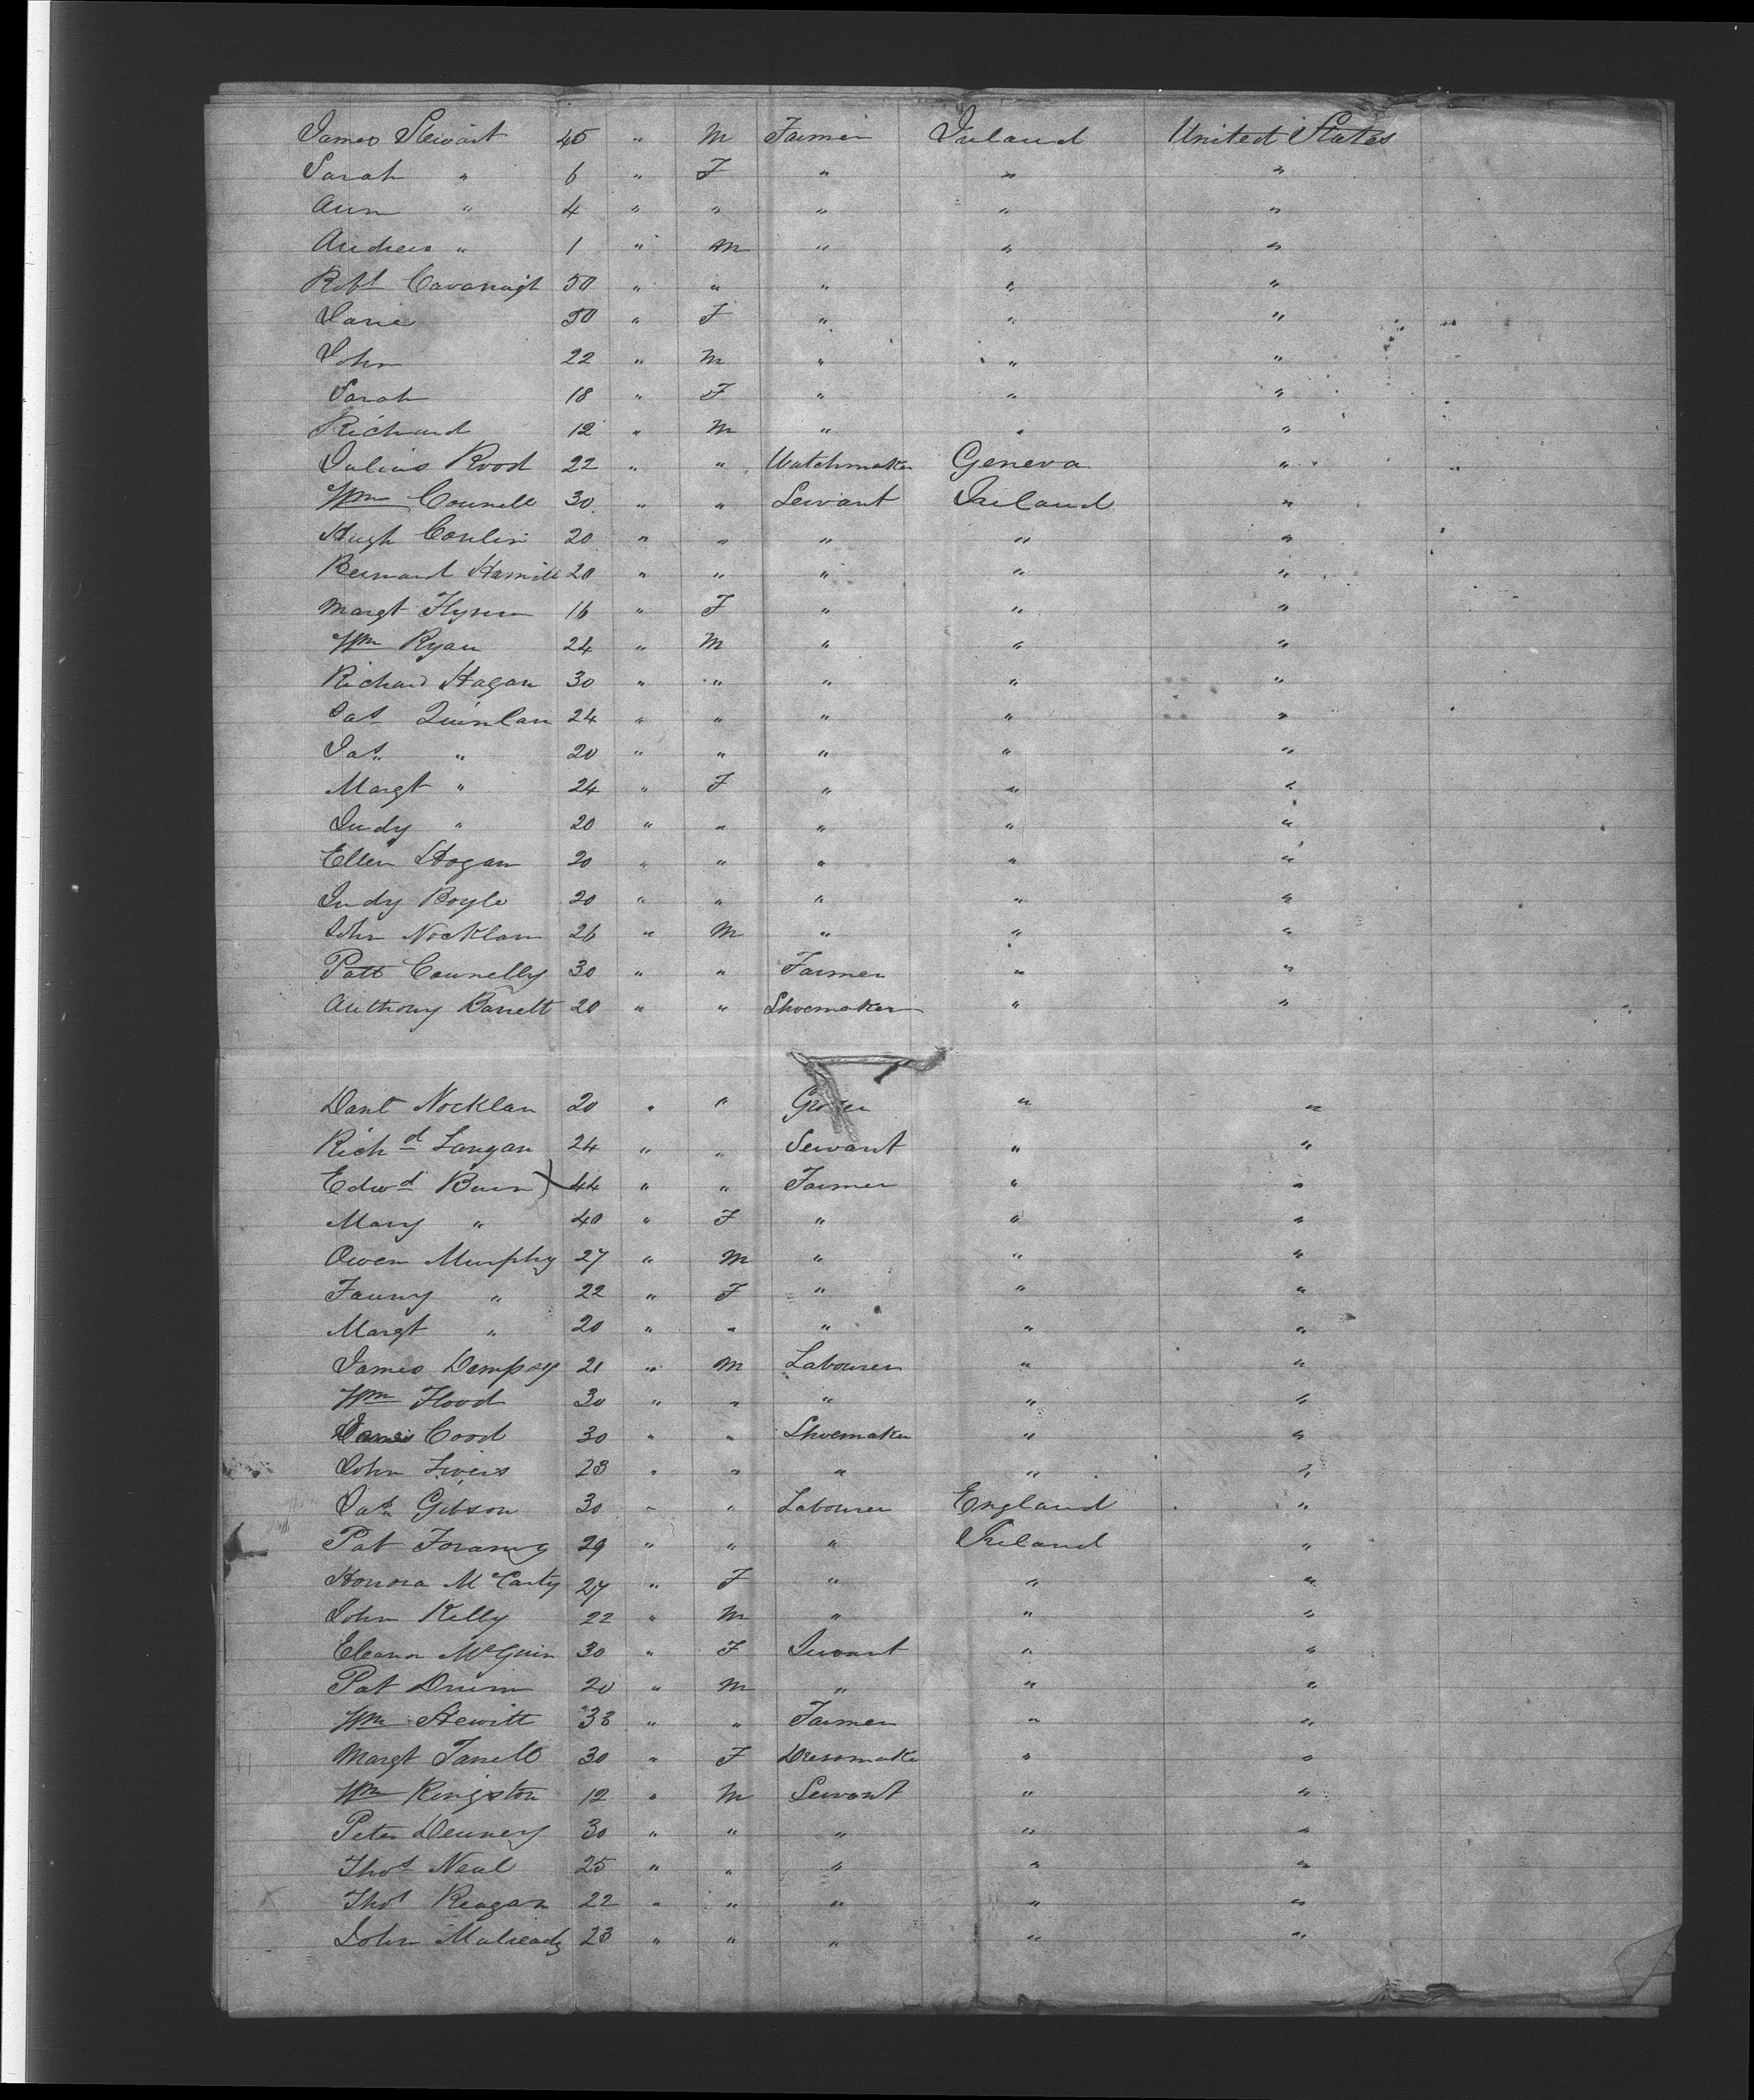 James Stewart 45 " M Farmer Ireland United States
Sarah " 6 " F " " "
Ann " 4 " " " " "
Andrew " 1 " M " " "
Robt Cavanagh 50 " " " " "
Jane 50 " F " " "
John 22 " M " " "
Sarah 18 " F " " "
Richard 12 " M " " "
Julius Rood 22 " " Watchmaker Geneva "
Wm Connell 30 " " Servant Ireland "
Hugh Conlin 20 " " " " "
Bernard Hamill 20 " " " " "
Margt Flynn 16 " F " " "
Wm Ryan 24 " M " " "
Richard Hagan 30 " " " " "
Pat Quinlan 24 " " " " "
Jas " 20 " " " " "
Margt " 24 " F " " "
Judy " 20 " " " " "
Ellen Hogan 20 " " " " "
Judy Boyle 20 " " " " "
John Nocklan 26 " M " " "
Patt Connelly 30 " " Farmer " "
Anthony Barrett 20 " " Shoemaker " "
Danl Nocklan 20 " " Grocer " "
Richd Langan 24 " " Servant " "
Edwd Burn 44 " " Farmer " "
Mary " 40 " F " " "
Owen Murphy 27 " M " " "
Fanny " 22 " F " " "
Margt " 20 " " " " "
James Dempsey 21 " M Labourer " "
Wm Flood 30 " " " " "
Cood 30 " " Shoemaker " "
John 23 " " " " "
Jas Gibson 30 " " Labourer England "
Pat 29 " " " Ireland "
Honora McCarty 27 " F " " "
John Kelly 22 " M " " "
Eleanor McGuin 30 " F Servant " "
Pat Drum 20 " M " " "
Wm Hewitt 33 " " Farmer " "
Margt Farrell 30 " F Dressmaker " "
Wm Kingston 12 " M Servant " "
Peter Denney 30 " " " " "
Thos Neal 25 " " " " "
Thos Reagan 22 " " " " "
John Mulready 23 " " " " "